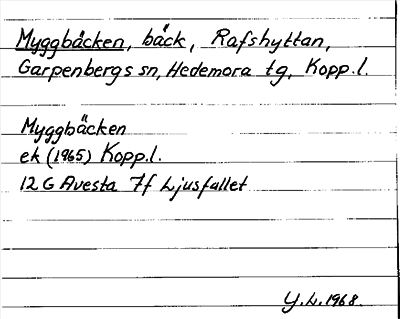 Myggbäcken, bäck, Rafshyttan,
Garpenbergs sn, Hedemora tg, Kopp.l.
Myggbäcken
ek (1965) Kopp.l.
12 G Avesta 7f Ljusfallet
Y.L. 1968.